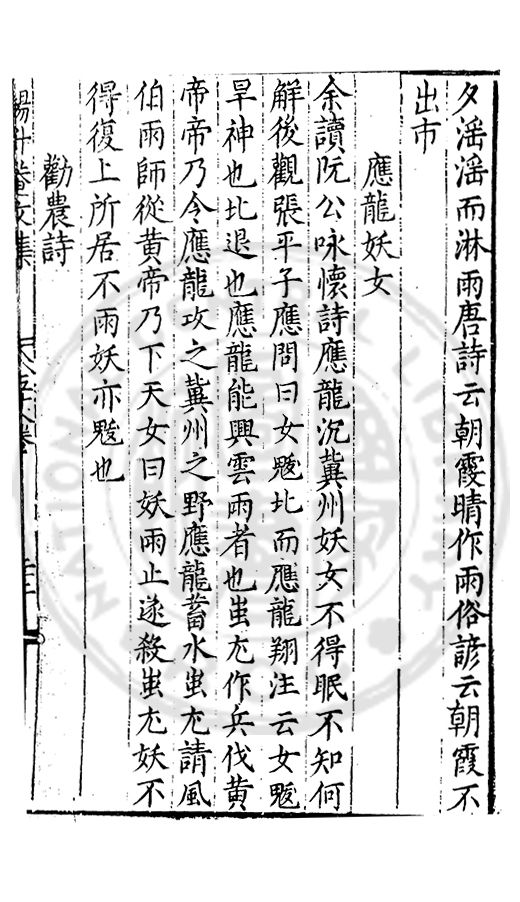 夕滛滛而淋雨唐詩云朝霞晴作雨俗諺云朝霞不
出市
應龍妖女
余讀阮公咏懷詩應龍沉冀州妖女不得眠不知何
解後觀張平子應問曰女魃北而應龍翔注云女魃
旱神也北退也應龍能興雲雨者也蚩尤作兵伐黄
帝帝乃令應龍攻之冀州之野應龍蓄水蚩尤請風
伯雨師從黄帝乃下天女曰妖雨止遂殺蚩尤妖不
得復上所居不雨妖亦魃也
勸農詩